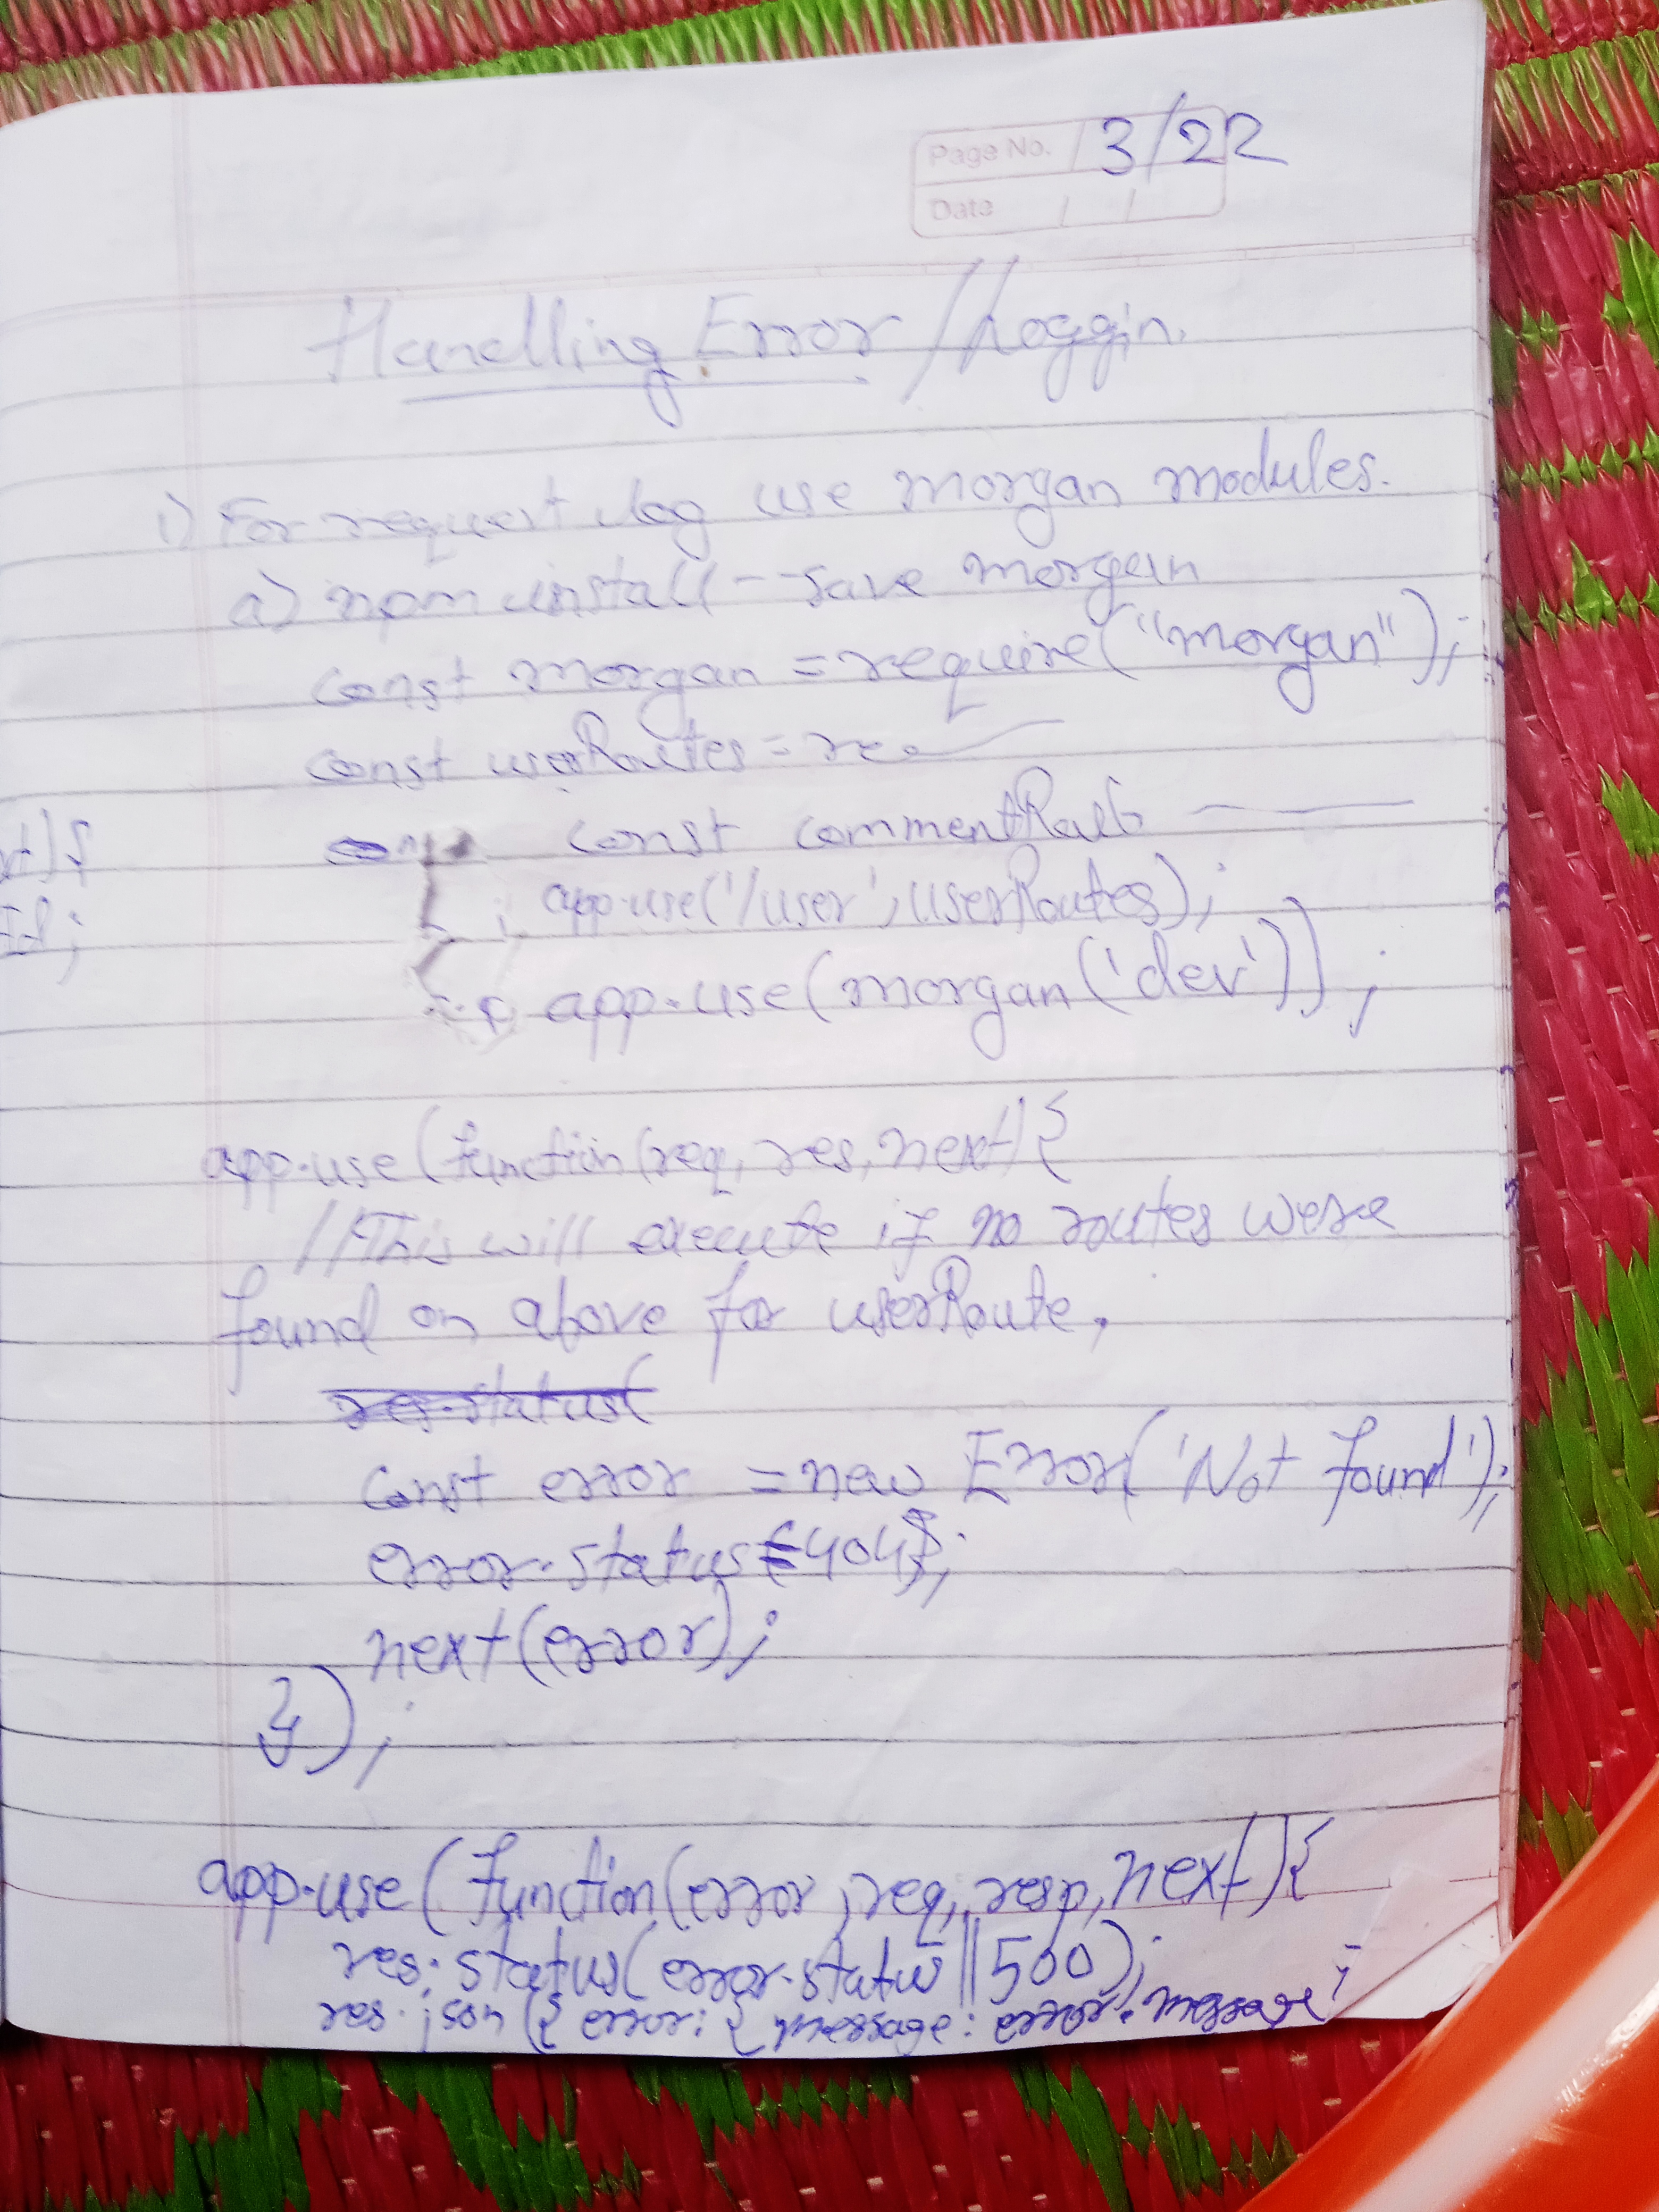 Page No. 3/22
Date
Handling Error / Loggin.
i) For request log use morgan modules.
a) npm install --save morgan
const morgan = require("morgan");
const userRoutes = re
const commentRout
app.use('/user', userRoutes);
app.use(morgan('dev'));
xt){
Id;
app.use(function(req, res, next){
//This will execute if no routes were
found on above for userRoute.
res.status(
const error = new Error('Not found');
error.status=404;
next(error);
});
app.use(function(error, req, resp, next){
res.status(error.status||500);
res.json({ error: { message: error.message